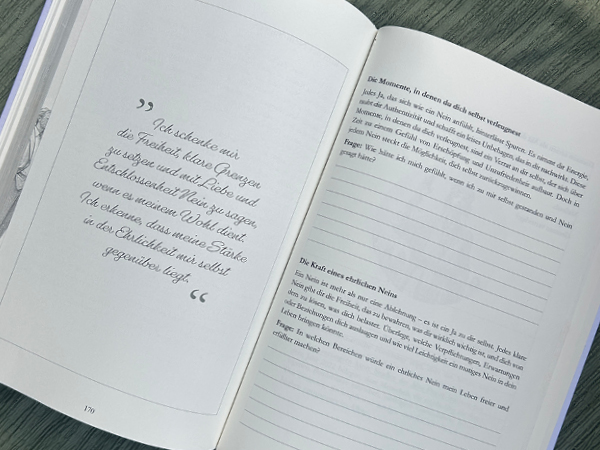 ”
Ich schenke mir
die Freiheit, klare Grenzen
zu setzen und mit Liebe und
Entschlossenheit Nein zu sagen,
wenn es meinem Wohl dient.
Ich erkenne, dass meine Stärke
in der Ehrlichkeit mir selbst
gegenüber liegt.
“
170
Die Momente, in denen du dich selbst verleugnest
Jedes Ja, das sich wie ein Nein anfühlt, hinterlässt Spuren. Es nimmt die Energie,
raubt die Authentizität und schafft ein leises Unbehagen, das in dir nachwirkt. Diese
Momente, in denen du dich verleugnest, sind ein Verrat an dir selbst, der sich über
Zeit zu einem Gefühl von Erschöpfung und Unzufriedenheit aufbaut. Doch in
jedem Nein steckt die Möglichkeit, dich selbst zurückzugewinnen.
Frage: Wie hätte ich mich gefühlt, wenn ich zu mir selbst gestanden und Nein
gesagt hätte?
Die Kraft eines ehrlichen Neins
Ein Nein ist mehr als nur eine Ablehnung – es ist ein Ja zu dir selbst. Jedes klare
Nein gibt dir die Freiheit, das zu bewahren, was dir wirklich wichtig ist, und dich von
dem zu lösen, was dich belastet. Überlege, welche Verpflichtungen, Erwartungen
oder Beziehungen dich auslaugen und wie viel Leichtigkeit ein mutiges Nein in dein
Leben bringen könnte.
Frage: In welchen Bereichen würde ein ehrliches Nein mein Leben freier und
erfüllter machen?